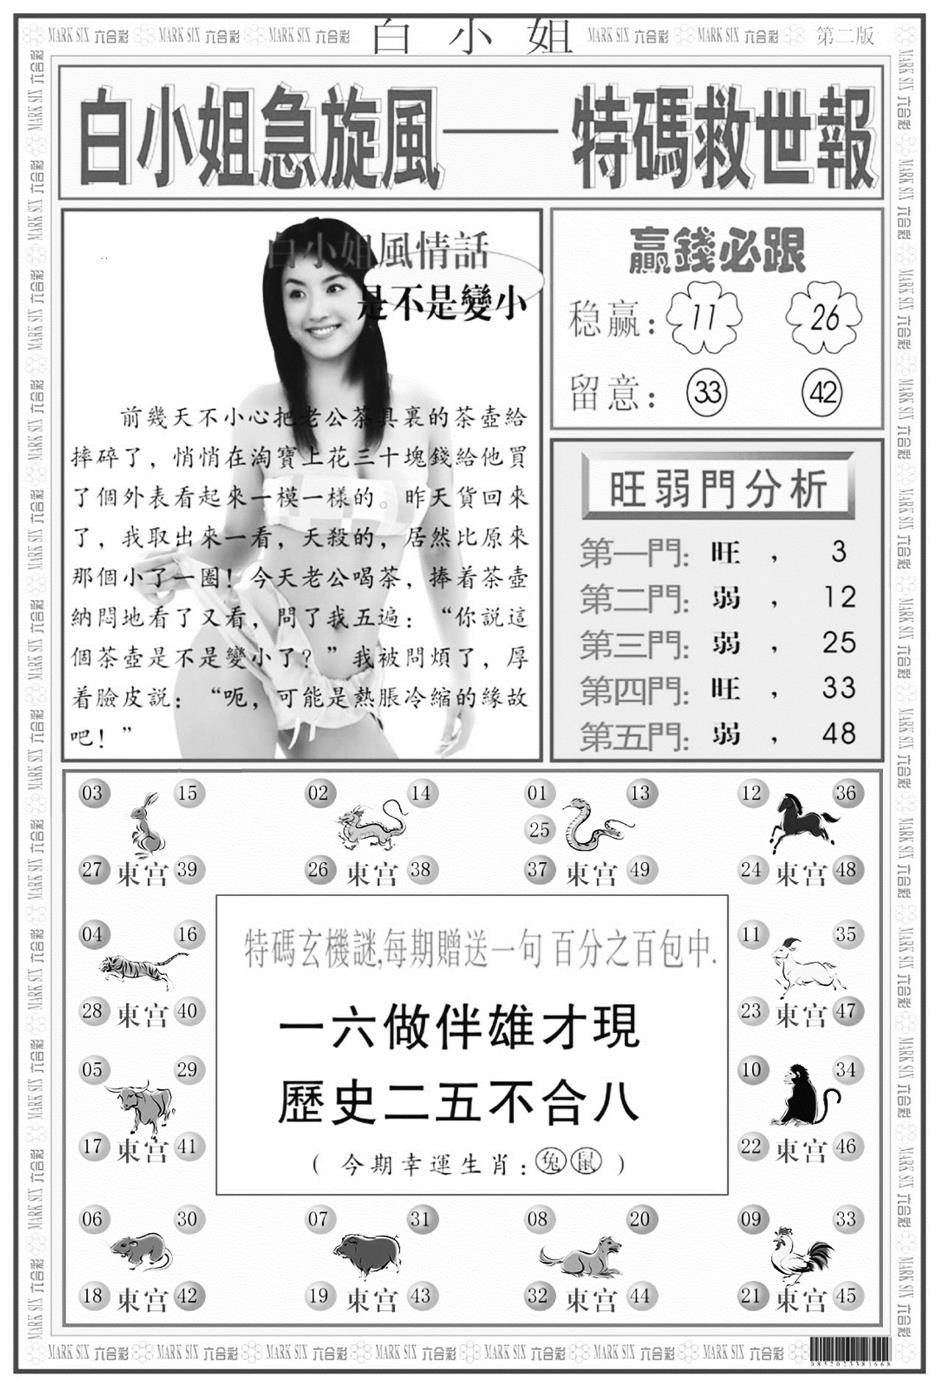 MARK SIX 六合彩 MARK SIX 六合彩 MARK SIX 六合彩 白小姐 MARK SIX 六合彩 MARK SIX 六合彩 第二版
白小姐急旋風——特碼救世報
白小姐風情話
是不是變小
前幾天不小心把老公茶具裏的茶壺給
摔碎了，悄悄在淘寶上花三十塊錢給他買
了個外表看起來一模一樣的。昨天貨回來
了，我取出來一看，天殺的，居然比原來
那個小了一圈！今天老公喝茶，捧着茶壺
納悶地看了又看，問了我五遍：“你說這
個茶壺是不是變小了？”我被問煩了，厚
着臉皮説：“呃，可能是熱脹冷縮的緣故
吧！”
贏錢必跟
稳赢：11 26
留意：33 42
旺弱門分析
第一門：旺，3
第二門：弱，12
第三門：弱，25
第四門：旺，33
第五門：弱，48
03 15 02 14 01 13 12 36
25
27 東宫 39 26 東宫 38 37 東宫 49 24 東宫 48
04 16 11 35
28 東宫 40 23 東宫 47
05 29 10 34
17 東宫 41 22 東宫 46
特碼玄機謎,每期贈送一句 百分之百包中.
一六做伴雄才現
歷史二五不合八
（今期幸運生肖：兔 鼠）
06 30 07 31 08 20 09 33
18 東宫 42 19 東宫 43 32 東宫 44 21 東宫 45
MARK SIX 六合彩 MARK SIX 六合彩 MARK SIX 六合彩 MARK SIX 六合彩 MARK SIX 六合彩 MARK SIX 六合彩 MARK SIX 六合彩